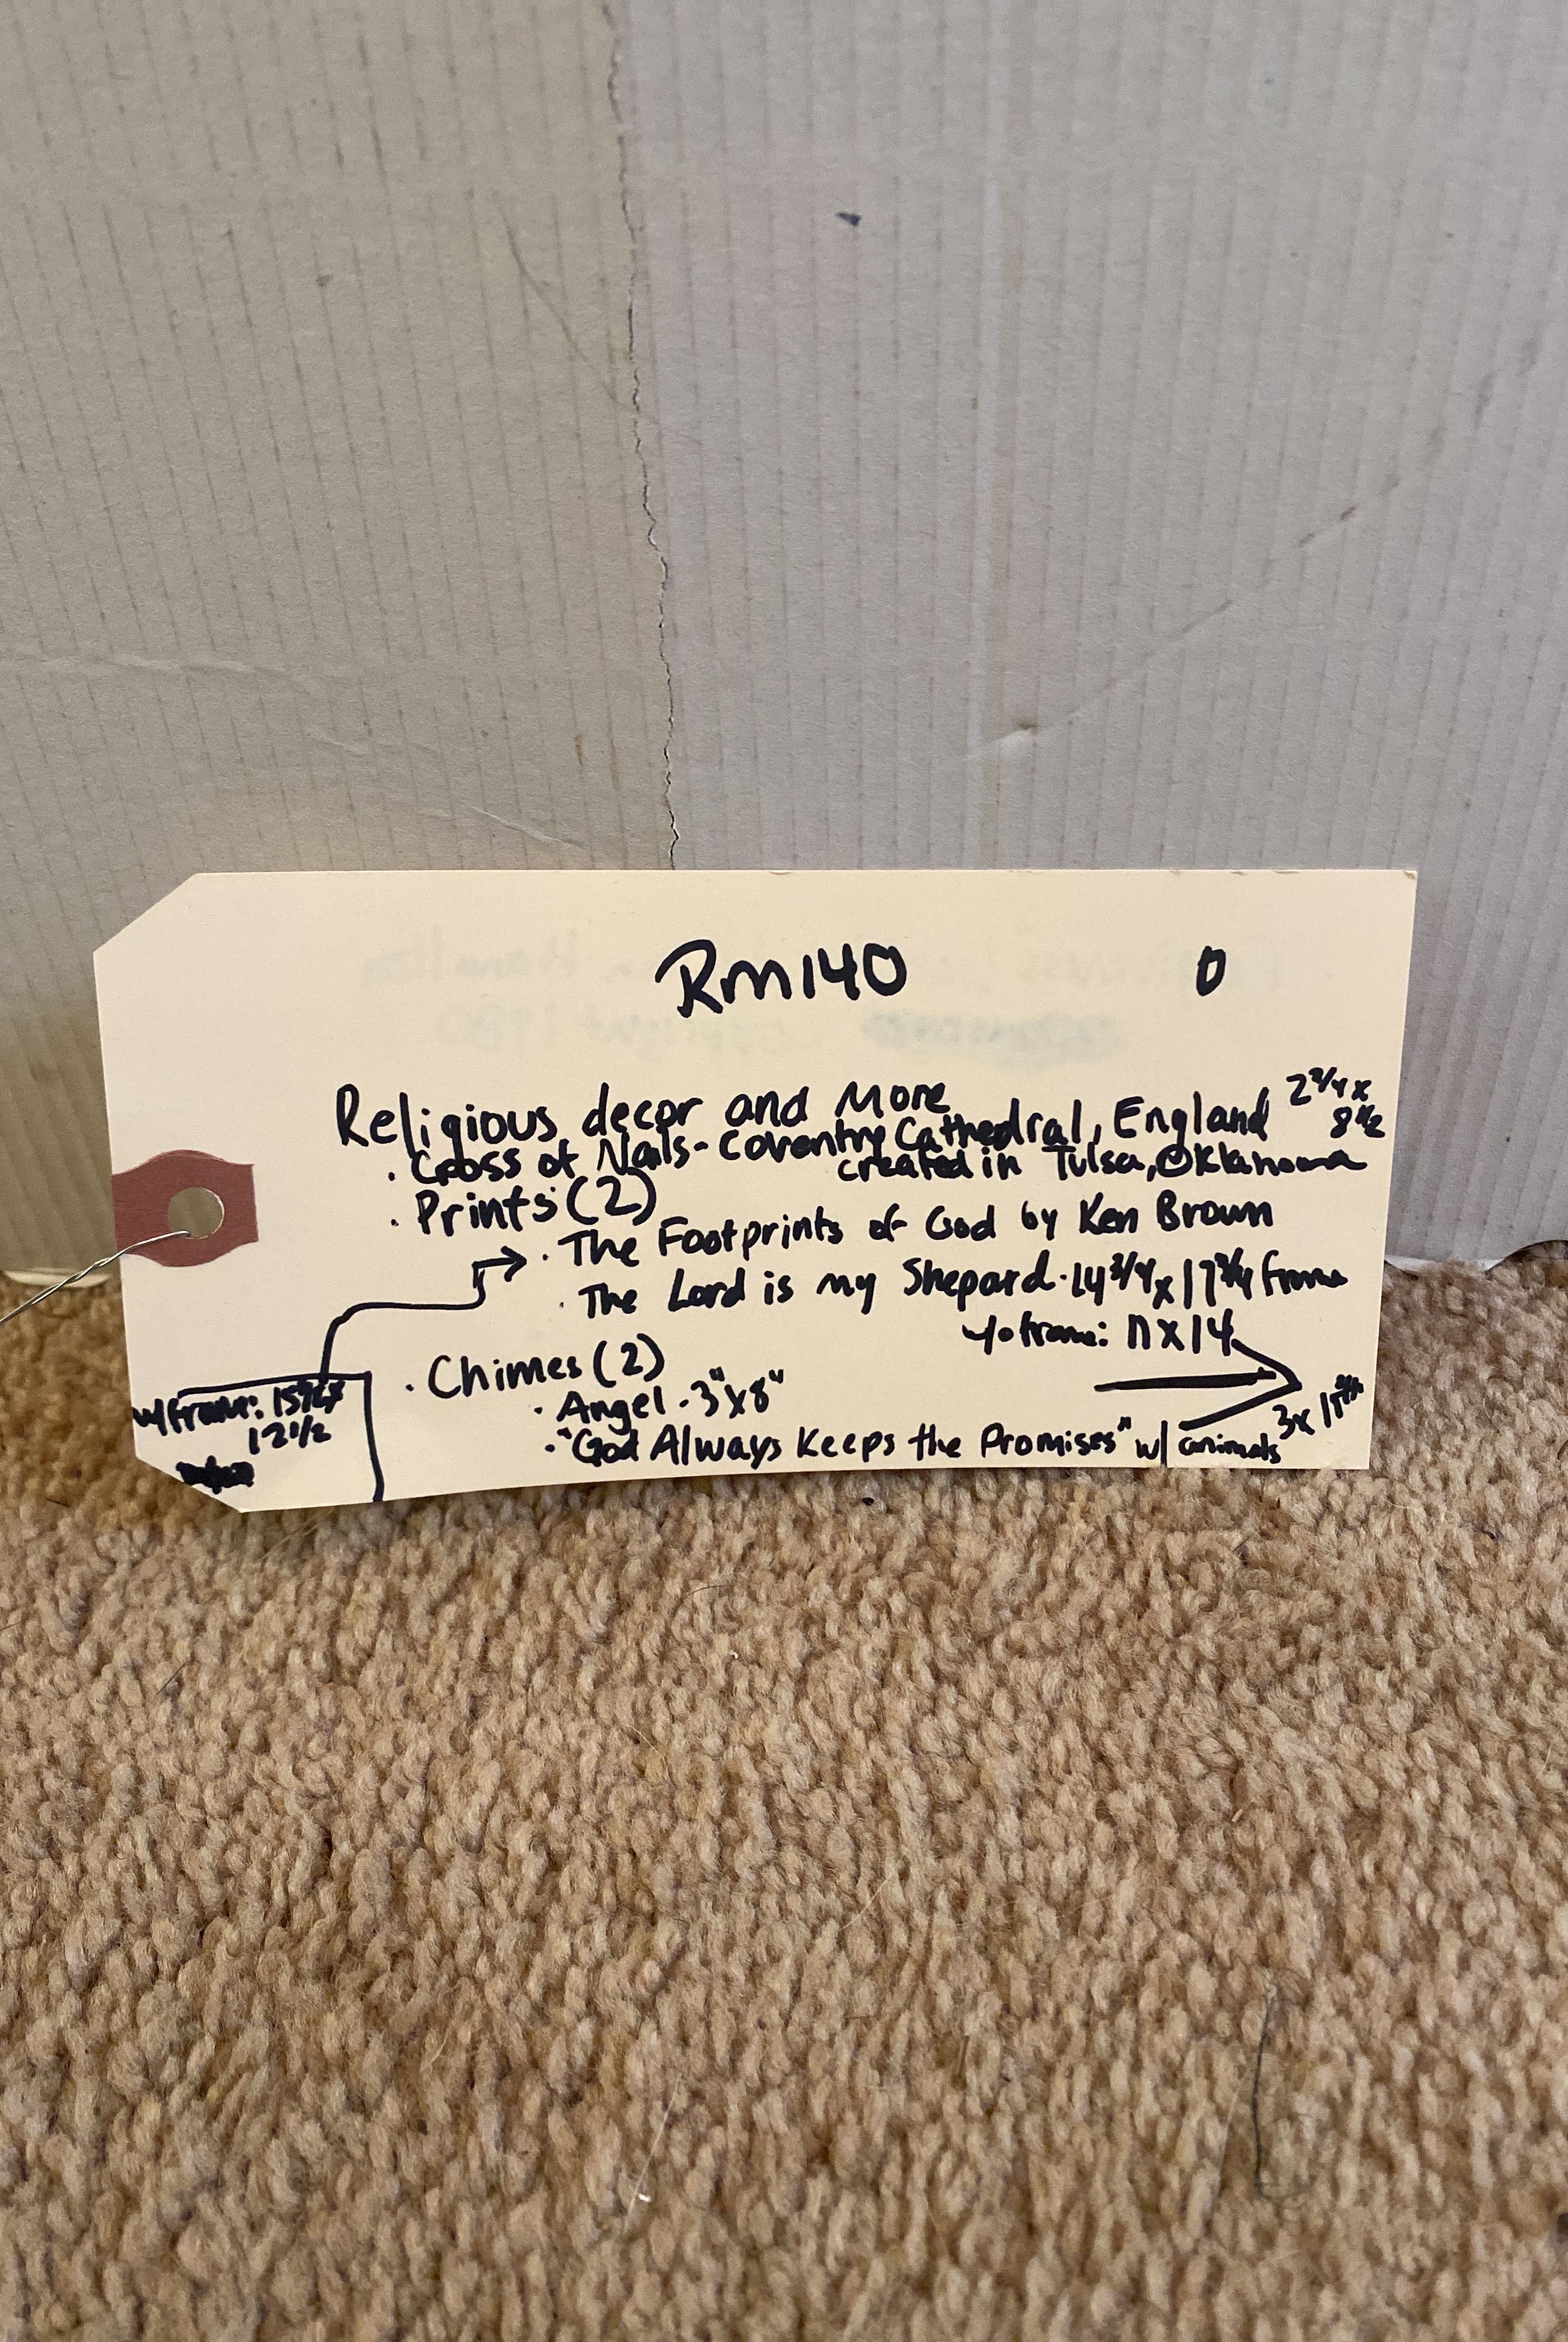 Rm140 0
Religious decor and More
· Cross of Nails - Coventry Cathedral, England 2 3/4 x 8 1/2
created in Tulsa, Oklahoma
· Prints (2)
· The Footprints of God by Ken Brown
· The Lord is my Shepard · 14 3/4 x 17 3/4 frame
w/o frame: 11 x 14
· Chimes (2)
· Angel · 3" x 8"
· "God Always Keeps the Promises" w/ animals 3 x
w/ frame:
12 1/2